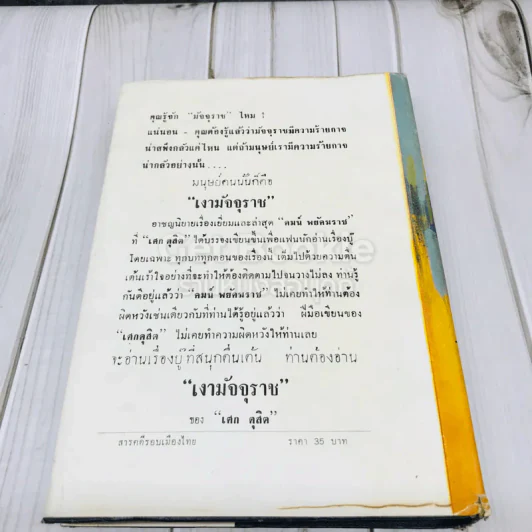 คุณรู้จัก "มัจจุราช" ไหม !
แน่นอน - คุณต้องรู้แล้วว่ามัจจุราชมีความร้ายกาจ
น่าสพึงกลัวแค่ไหน แต่ถ้ามนุษย์เรามีความร้ายกาจ
น่ากลัวอย่างนั้น....
มนุษย์คนนั้นก็คือ
"เงามัจจุราช"
อาชญนิยายเรื่องเยี่ยมและล่าสุด "คมน์ พยัคฆราช"
ที่ "เศก ดุสิต" ได้บรรจงเขียนขึ้นเพื่อแฟนนักอ่านเรื่องบู๊
โดยเฉพาะ ทุกบททุกตอนของเรื่องนี้ เต็มไปด้วยความตื่น
เต้นเร้าใจอย่างที่จะทำให้ต้องติดตามไปจนวางไม่ลง ท่านรู้
กันดีอยู่แล้วว่า "คมน์ พยัคฆราช" ไม่เคยทำให้ท่านต้อง
ผิดหวังเช่นเดียวกับที่ท่านได้รู้อยู่แล้วว่า ฝีมือเขียนของ
"เศกดุสิต" ไม่เคยทำความผิดหวังให้ท่านเลย
จะอ่านเรื่องบู๊ที่สนุกตื่นเต้น ท่านต้องอ่าน
"เงามัจจุราช"
ของ "เศก ดุสิต"
สารคดีรอบเมืองไทย ราคา 35 บาท